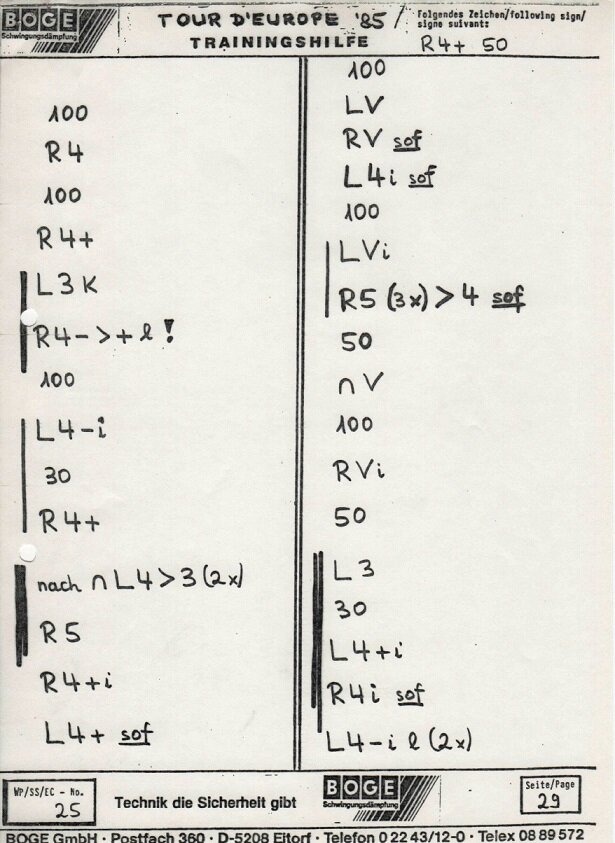 BOGE
Schwingungsdämpfung
TOUR D'EUROPE '85/
TRAININGSHILFE
Folgendes Zeichen/following sign/
signe suivant:
R4+ 50
100
R4
100
R4+
L3K
R4->+ l !
100
L4-i
30
R4+
nach ∩ L4>3 (2x)
R5
R4+i
L4+ sof
100
LV
RV sof
L4i sof
100
LVi
R5 (3x) > 4 sof
50
∩ V
100
RVi
50
L3
30
L4+i
R4i sof
L4-i l (2x)
WP/SS/EC - No.
25
Technik die Sicherheit gibt
BOGE
Schwingungsdämpfung
Seite/Page
29
BOGE GmbH · Postfach 360 · D-5208 Eitorf · Telefon 0 22 43/12-0 · Telex 08 89 572